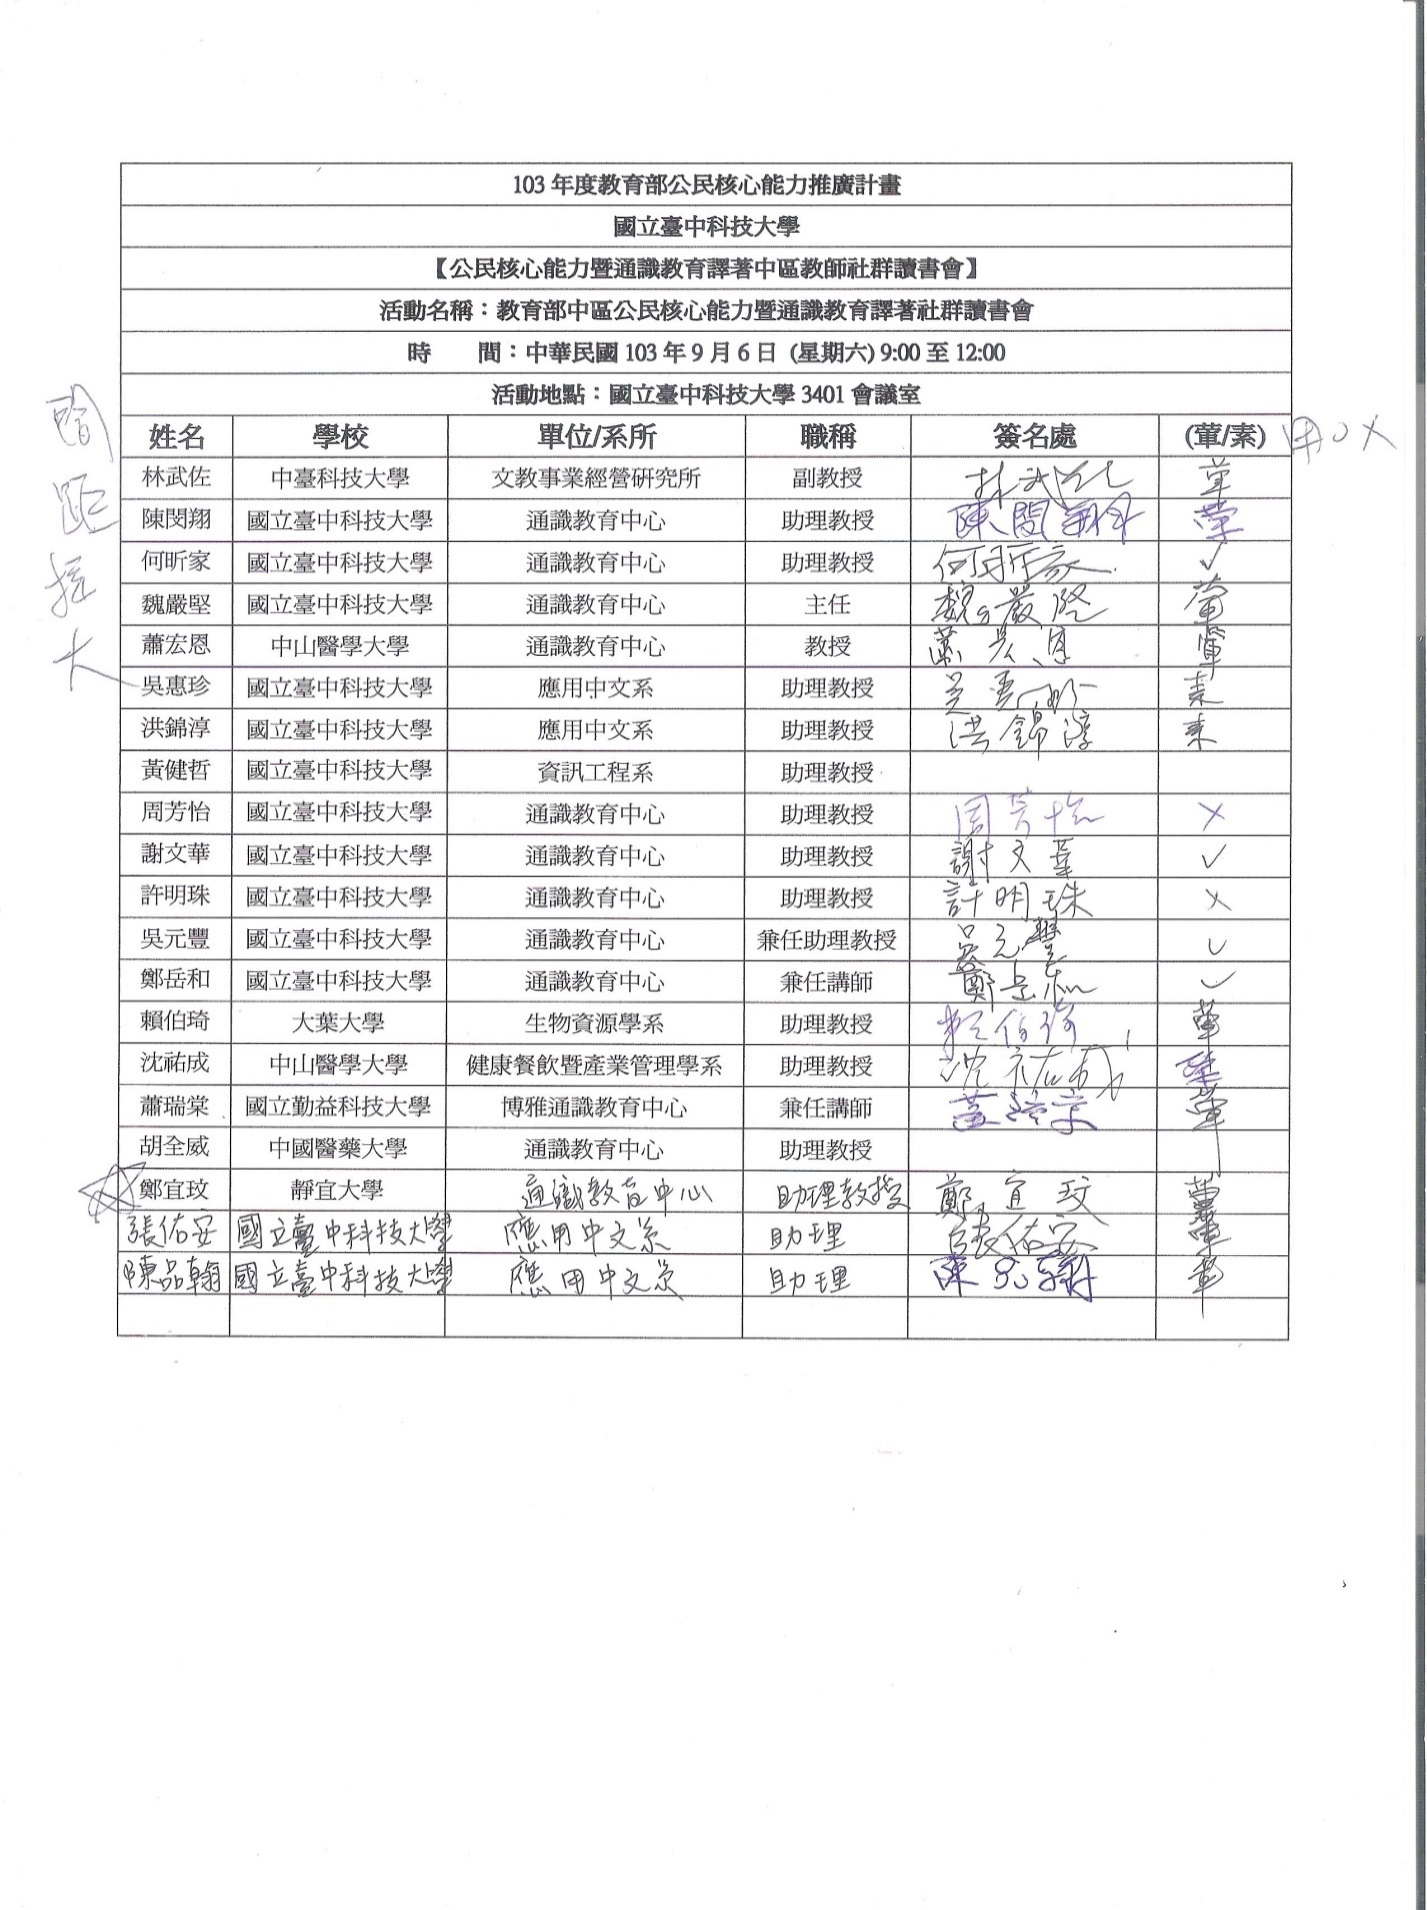 103 年度教育部公民核心能力推廣計畫
國立臺中科技大學
【公民核心能力暨通識教育譯著中區教師社群讀書會】
活動名稱：教育部中區公民核心能力暨通識教育譯著社群讀書會
時　　間：中華民國 103 年 9 月 6 日 (星期六) 9:00 至 12:00
活動地點：國立臺中科技大學 3401 會議室
間距拉大
姓名 學校 單位/系所 職稱 簽名處 (葷/素) 用○×
林武佐 中臺科技大學 文教事業經營研究所 副教授 林武佐 葷
陳閔翔 國立臺中科技大學 通識教育中心 助理教授 陳閔翔 葷
何昕家 國立臺中科技大學 通識教育中心 助理教授 何昕家 ✓
魏嚴堅 國立臺中科技大學 通識教育中心 主任 魏嚴堅 葷
蕭宏恩 中山醫學大學 通識教育中心 教授 蕭宏恩 葷
吳惠珍 國立臺中科技大學 應用中文系 助理教授 吳惠珍 素
洪錦淳 國立臺中科技大學 應用中文系 助理教授 洪錦淳 素
黃健哲 國立臺中科技大學 資訊工程系 助理教授
周芳怡 國立臺中科技大學 通識教育中心 助理教授 周芳怡 ×
謝文華 國立臺中科技大學 通識教育中心 助理教授 謝文華 ✓
許明珠 國立臺中科技大學 通識教育中心 助理教授 許明珠 ×
吳元豐 國立臺中科技大學 通識教育中心 兼任助理教授 吳元豐 ✓
鄭岳和 國立臺中科技大學 通識教育中心 兼任講師 鄭岳和 ✓
賴伯琦 大葉大學 生物資源學系 助理教授 賴伯琦 葷
沈祐成 中山醫學大學 健康餐飲暨產業管理學系 助理教授 沈祐成
蕭瑞棠 國立勤益科技大學 博雅通識教育中心 兼任講師 蕭瑞棠 葷
胡全威 中國醫藥大學 通識教育中心 助理教授
鄭宜玟 靜宜大學 通識教育中心 助理教授 鄭宜玟 葷
張佑安 國立臺中科技大學 應用中文系 助理 張佑安 葷
陳品翰 國立臺中科技大學 應用中文系 助理 陳品翰 葷